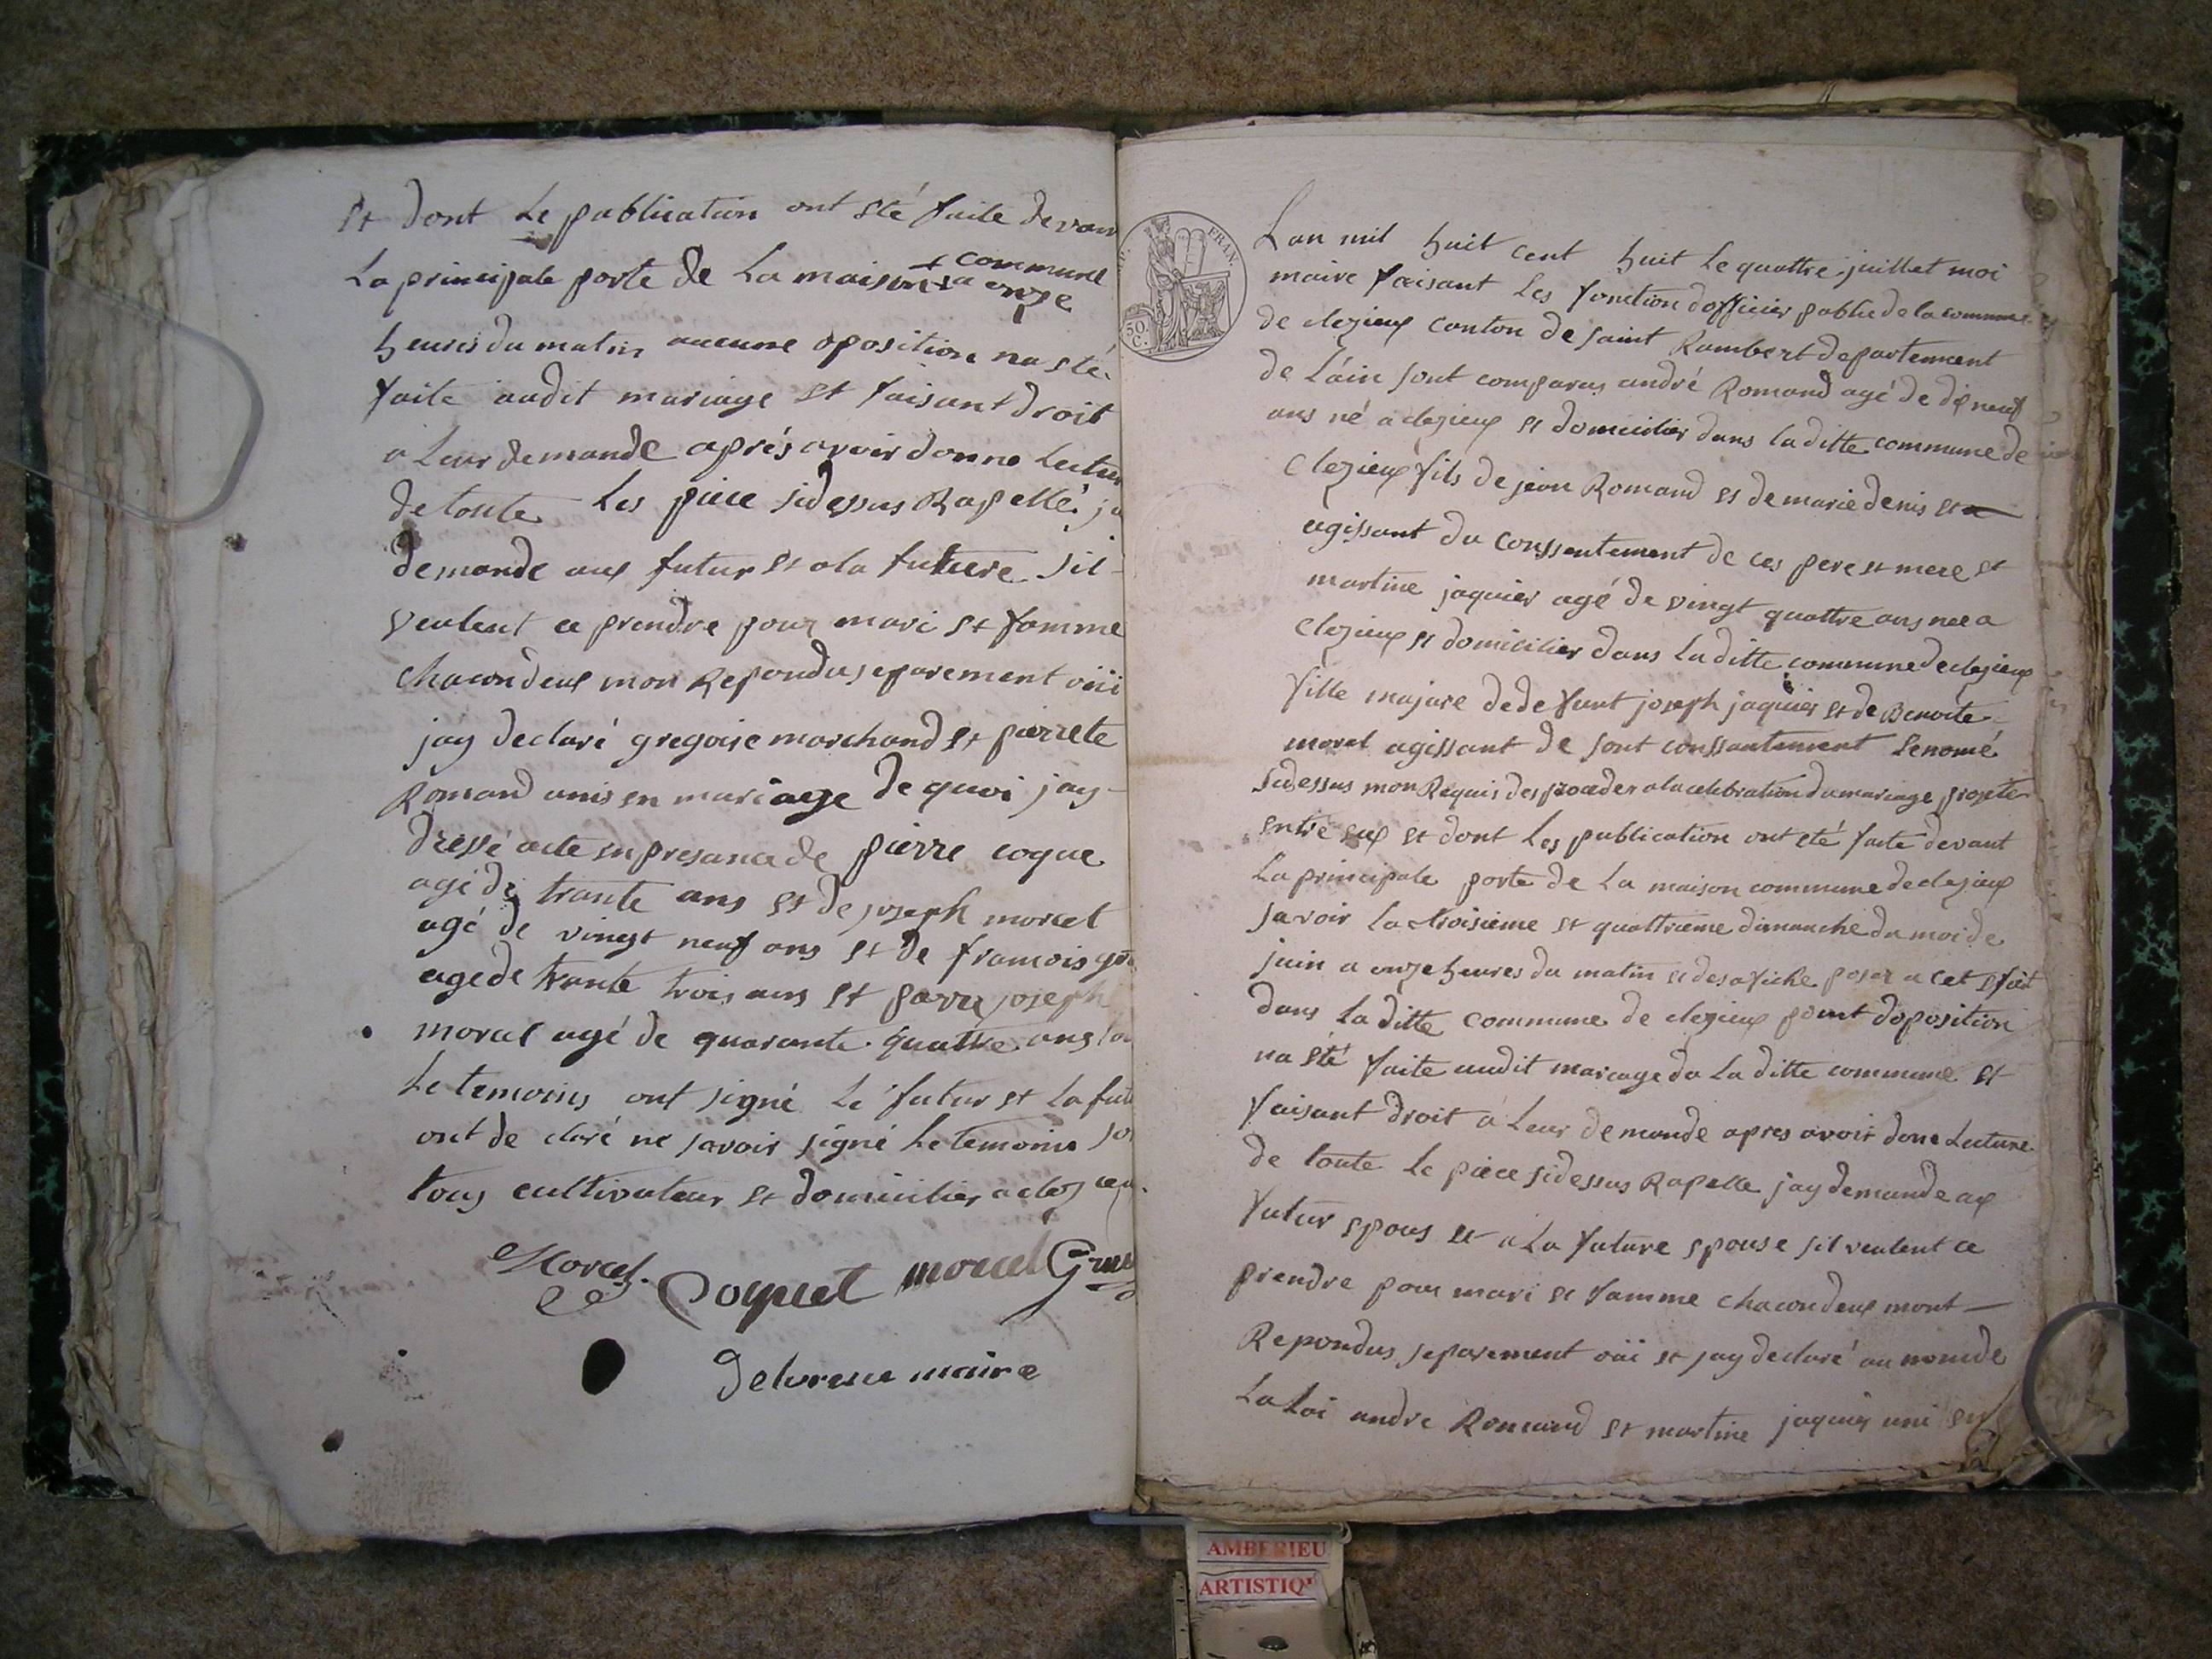 et dont le publication ont été faite devan
la principale porte de la maison + a onze
+ commune
heures du matin aucune oposition na eté
faite audit mariage et faisant droit
a leur demande aprés avoir donne lectur
de toute les piece sidessus Rapellé ja
demande aux futur et a la future sil
veulent ce prendre pour mari et famme
chacon deux mon Repondu separement oüi
jay declaré gregoire marchand et pierrete
Romand unis en mariage de quoi jay
dressé acte en presance de pierre coque
agé de trante ans et de joseph morcel
agé de vingt neuf ans et de francois
age de trante trois ans et pierre joseph
morcel agé de quarante quattre ans
le temoins ont signé le futur et la futu
ont de claré ne savoir signé le temoins so
tous cultivateur et domicilier a
Morcel Coquet morcel
maire
FRAN.
50.
C.
Lan mil huit cent huit le quattre juillet moi
maire faisant les fonction dofficier public de la commune
de clezieux canton de saint Rambert departement
de láin sont comparus andré Romand agé de dix neuf
ans né a clezieux et domicilier dans la ditte commune de
clezieux fils de jean Romand et de marie denis et
agissant du conssentement de ces pere et mere et
martine jaquier agé de vingt quattre ans nee a
clezieux et domicilier dans la ditte commune de clezieux
fille majure de defunt joseph jaquier et de Benoite
morel agissant de sont conssantement le nomé
sidessus mon Requis des proceder a la celebration du mariage projete
entre eux et dont les publication ont eté faite devant
la principale porte de la maison commune de clezieux
savoir la troisieme et quattrieme dimanche du moi de
juin a onze heures du matin et des afiche poser a cet efait
dans la ditte commune de clezieux point doposition
na eté faite audit mariage da la ditte commune et
faisant droit a leur demande apres avoir done lecture
de toute le piece sidessus Rapelle jay demande aux
futur epous et a la future epouse sil veulent ce
prendre pour mari et famme chacon deux mont
Repondus separement oüi et jay declaré au nom de
la loi andre Romand et martine jaquier uni en
AMBERIEU
ARTISTIQ'